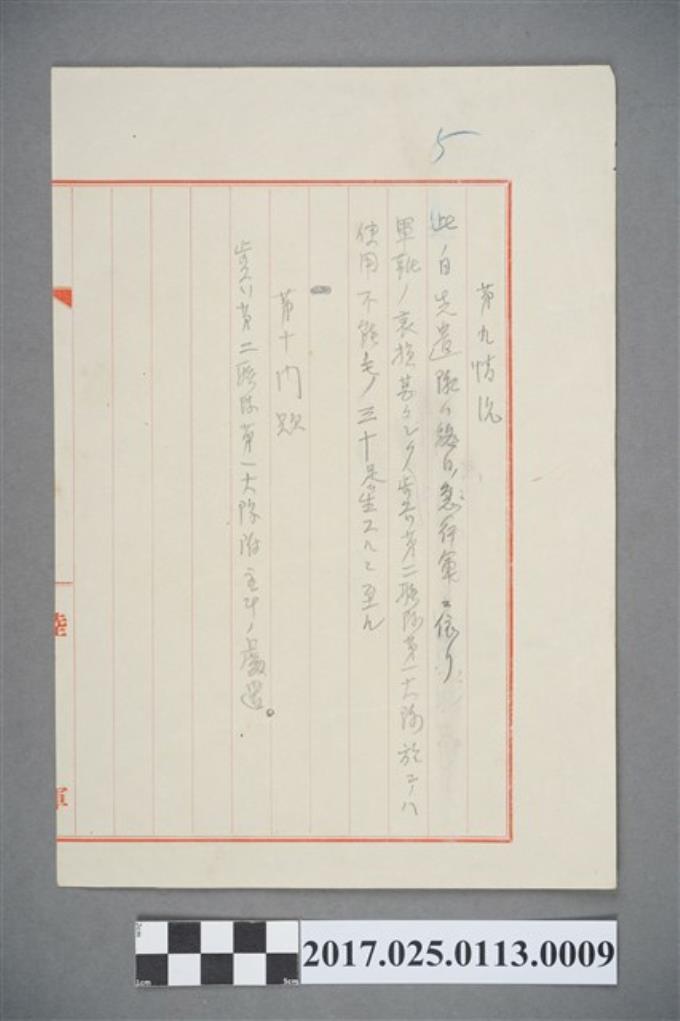 5
第九情況
此ノ日先遣隊ハ終日ノ急行軍ニ依リ
軍靴ノ衰損甚タシク歩兵第二聯隊第一大隊於テハ
使用不能モノ三十足生スルニ至ル
第十問題
歩兵第二聯隊第一大隊附主計ノ處置。
陸
軍
2017.025.0113.0009